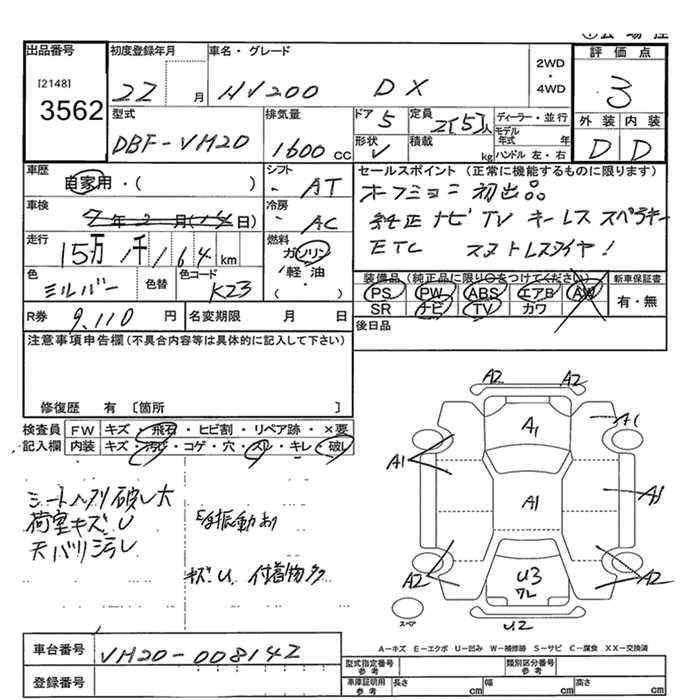 出品番号
[2148]
3562
初度登録年月
22 月
車名・グレード
NV200 DX
2WD
・
4WD
評価点
3
外装 内装
D D
型式
DBF-VM20
排気量
1600 CC
ドア 5
形状 V
定員
2[5]人
積載
kg
ディーラー・並行
モデル
年式 年
ハンドル 左・右
車歴
自家用・( )
シフト
AT
車検
7年2月(14日)
冷房
AC
走行
15万1千164km
燃料
ガソリン
軽油
( )
色
シルバー
色替
色コード
K23
セールスポイント (正常に機能するものに限ります)
初出品
純正ナビ TV キーレス スペアキー
ETC スタットレスタイヤ!
装備品(純正品に限り○をつけてください)
PS PW ABS エアB AW
SR ナビ TV カワ
新車保証書
有・無
後日品
R券 9,110円
名変期限 月 日
注意事項申告欄(不具合内容等は具体的に記入して下さい)
修復歴 有 〔箇所 〕
検査員
記入欄
FW キズ・飛石・ヒビ割・リペア跡・×要
内装 キズ・汚れ・コゲ・穴・スレ・キレ・破レ
シートヘタリ破レ大
荷室キズU
天バリ汚レ
振動あり
キズU 付着物多
A2 A2
A1
A1
A1
A1
A1
A2
U3
ワレ
A2
U2
スペア
A-キズ E-エクボ U-凹み W-補修跡 S-サビ C-腐食 XX-交換済
車台番号
VM20-008142
登録番号
型式指定番号
参考
類別区分番号
参考
車庫証明用
参考
長さ cm
幅 cm
高さ cm